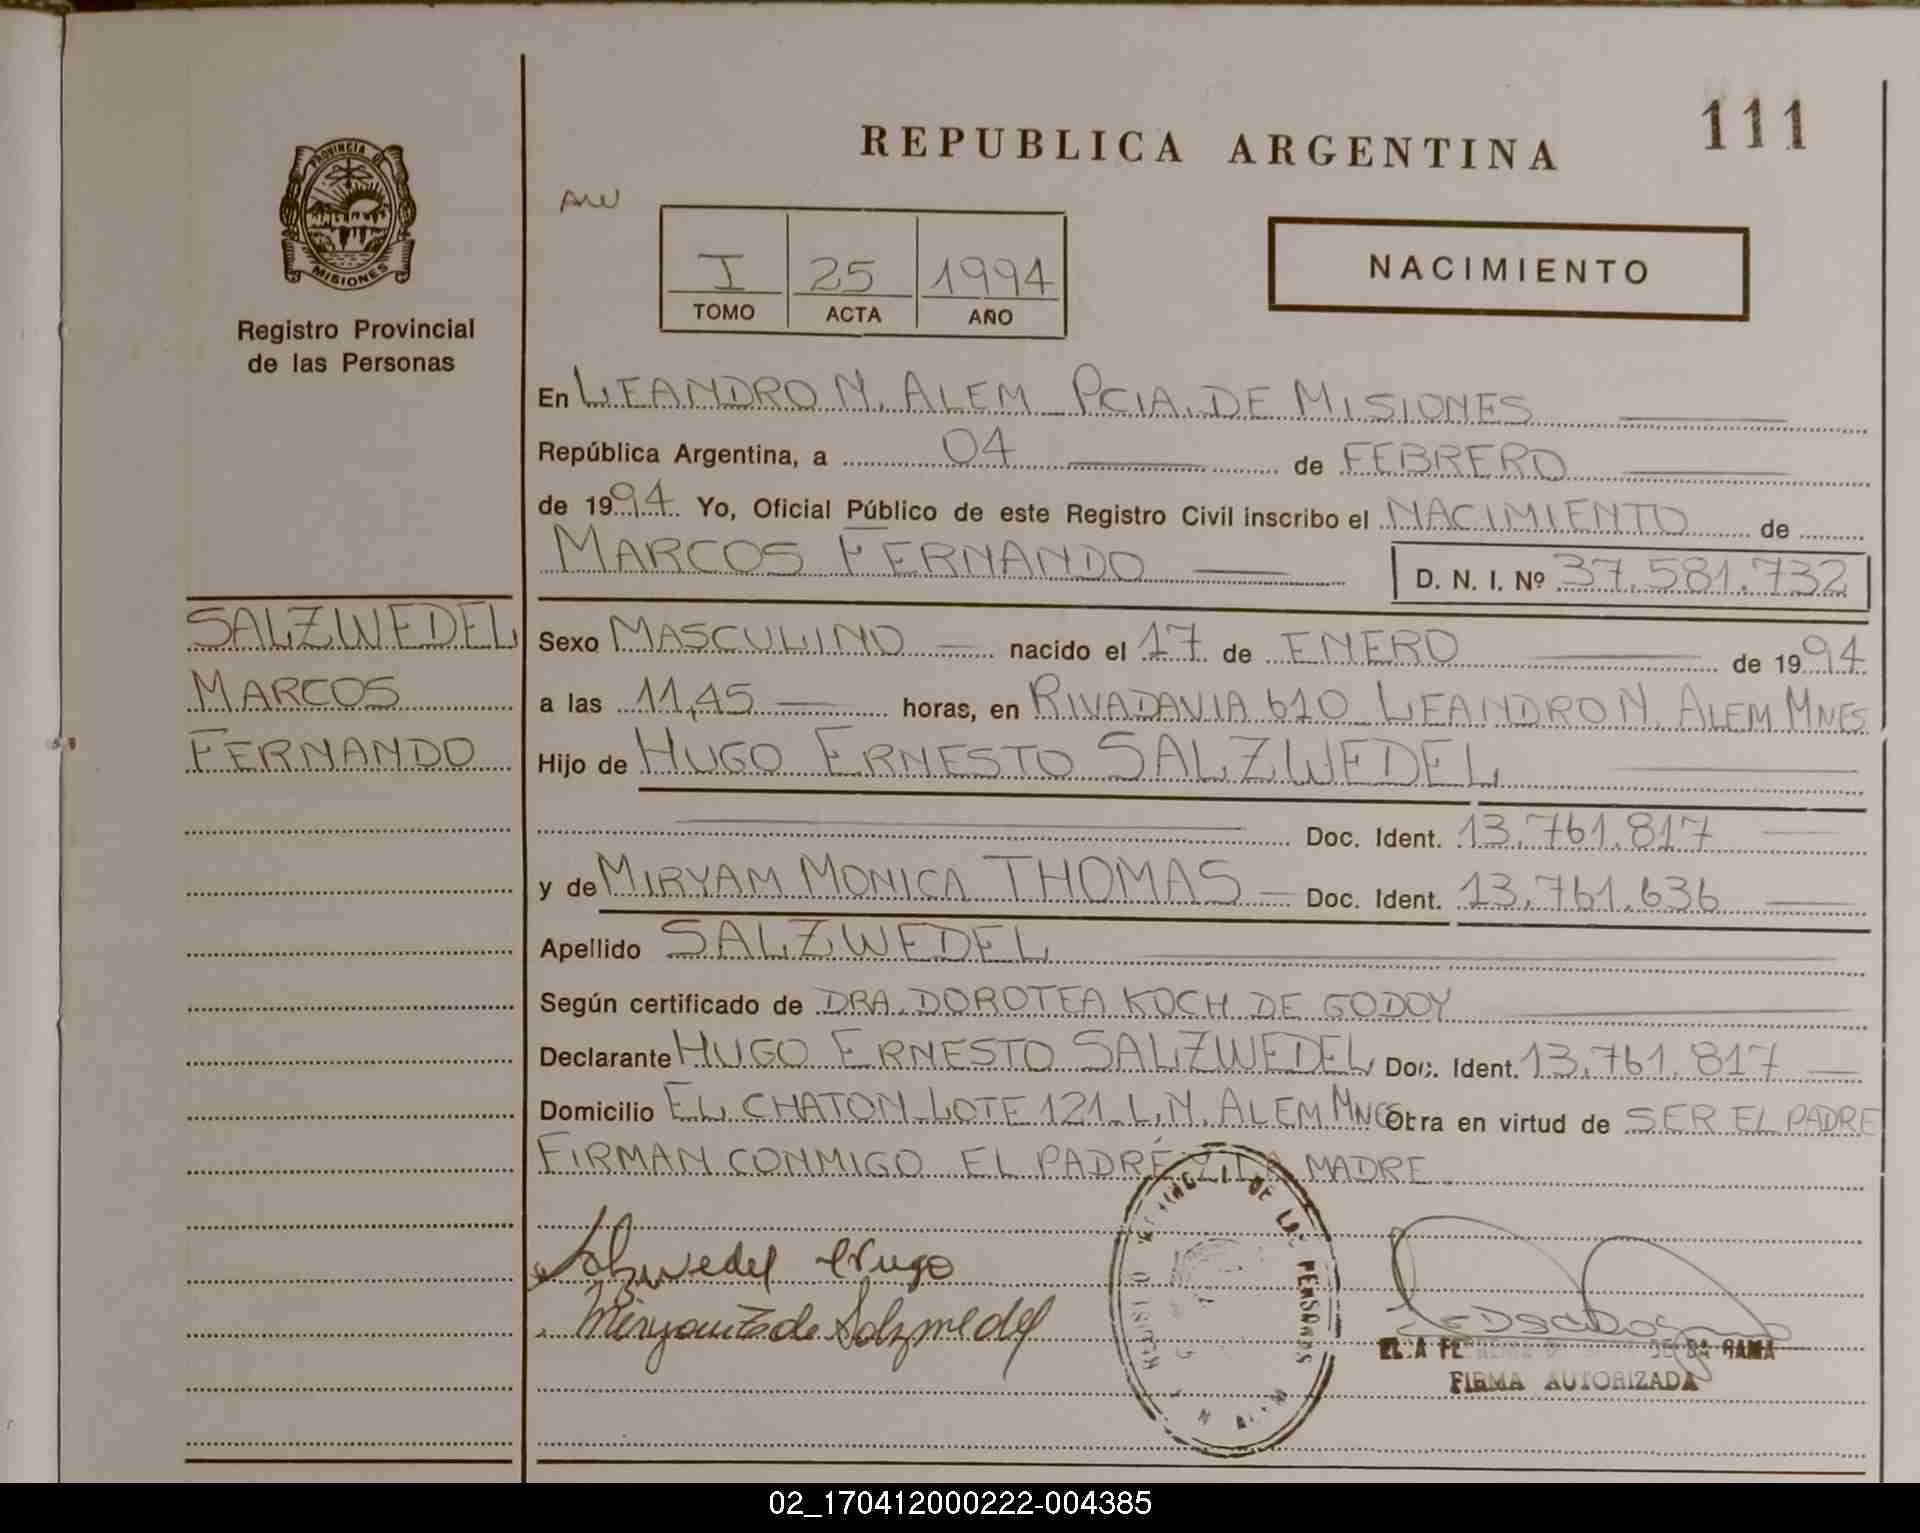 REPUBLICA ARGENTINA
111
PROVINCIA DE
MISIONES
Registro Provincial
de las Personas
NACIMIENTO
I 25 1994
TOMO ACTA AÑO
En LEANDRO N. ALEM PCIA. DE MISIONES
República Argentina, a 04 de FEBRERO
de 1994 Yo, Oficial Público de este Registro Civil inscribo el NACIMIENTO de
MARCOS FERNANDO D. N. I. Nº 37.581.732
SALZWEDEL
MARCOS
FERNANDO
Sexo MASCULINO nacido el 17 de ENERO de 1994
a las 11,45 horas, en RIVADAVIA 610 LEANDRO N. ALEM MNES
Hijo de HUGO ERNESTO SALZWEDEL
Doc. Ident. 13.761.817
y de MIRYAM MONICA THOMAS Doc. Ident. 13.761.636
Apellido SALZWEDEL
Según certificado de DRA. DOROTEA KOCH DE GODOY
Declarante HUGO ERNESTO SALZWEDEL Doc. Ident. 13.761.817
Domicilio EL CHATON LOTE 121 L.N. ALEM MNES Obra en virtud de SER EL PADRE
FIRMAN CONMIGO EL PADRE Y LA MADRE
Salzwedel Hugo
de Salzwedel
DE LAS PERSONAS
DA RAMA
FIRMA AUTORIZADA
02_170412000222-004385